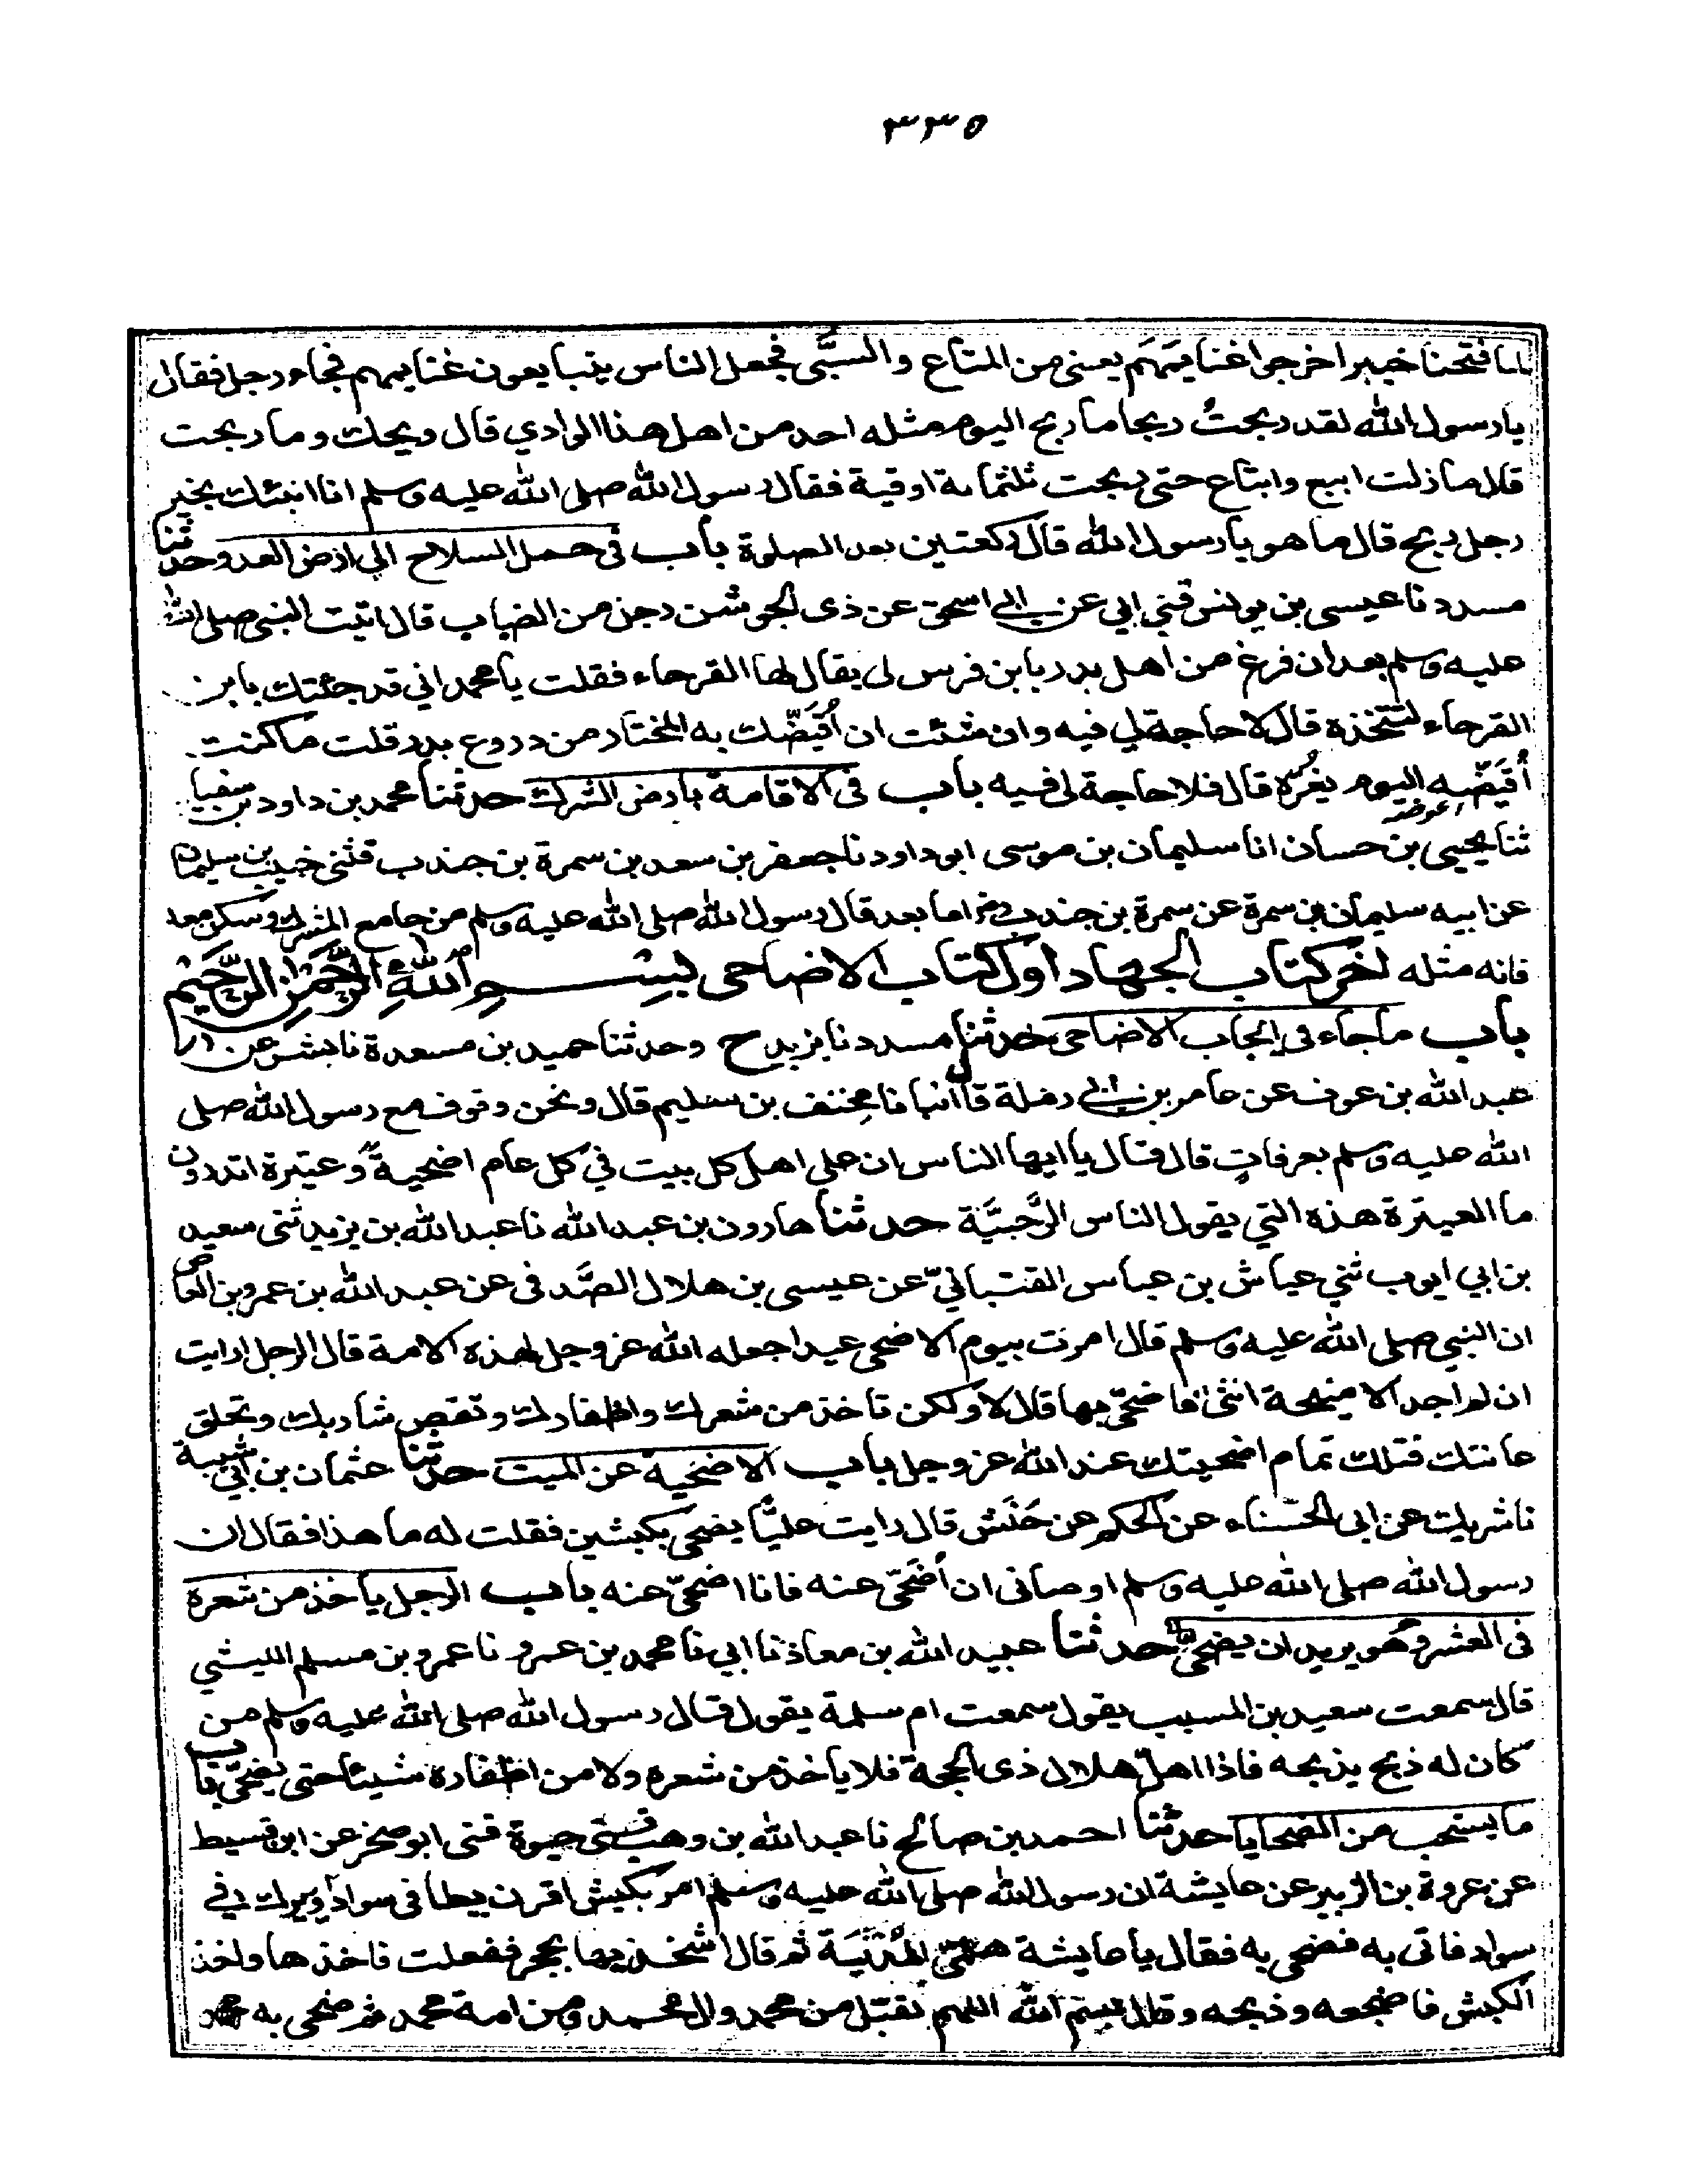 ٣٣٥
لما فتحنا خيبر اخرجوا غنايمَهَم يعنى من المتاع والسَّبَى فجعل الناس يتبايعون غنايمهم فجاء رجل فقال
يا رسول الله لقد ربحتُ ربحا ما ربح اليوم مثله احد من اهل هذا الوادي قال ويحك وما ربحت
قال ما زلت ابيع وابتاع حتى ربحت ثلثماىة اوقية فقال رسول الله صلى الله عليه وسلم انا انبئك بخير
رجل ربح قال ما هو يا رسول الله قال ركعتين بعد الصلوة باب فى حمل السلاح الي ارض العدو حدثنا
مسدد نا عيسى بن يونس ثني ابي عن ابي اسحق عن ذى الجوشن رجل من الضباب قال اتيت النبي صلى الله
عليه وسلم بعد ان فرغ من اهل بدر بابن فرس لى يقال لها القرحاء فقلت يا محمد اني قد جئتك بابن
القرحاء لتتخذه قال لا حاجة لي فيه وان شئت ان أُقَيِّضَك به المختار من دروع بدر قلت ما كنت
أُقَيِّضه اليوم بغُرّة قال فلا حاجة لى فيه باب فى الاقامة بارض الشرك حدثنا محمد بن داود بن سفيا
عوضه
ثنا يحيى بن حسان انا سليمان بن موسى ابو داود نا جعفر بن سعد بن سمرة بن جندب ثني خبيب بن سليمان
عن ابيه سليمان بن سمرة عن سمرة بن جندب اما بعد قال رسول الله صلى الله عليه وسلم من جامع المشرك وسكن معه
فانه مثله اخر كتاب الجهاد اول كتاب الاضاحى بسم الله الرحمن الرحيم
باب ما جاء في ايجاب الاضاحى حدثنا مسدد نا يزيد ح وحدثنا حميد بن مسعدة نا بشر عن
عبد الله بن عوف عن عامر بن ابي رملة قال أنبانا مِخنف بن سليم قال ونحن وقوف مع رسول الله صلى
الله عليه وسلم بعرفاتٍ قال قال يا ايها الناس ان على اهل كل بيت في كل عام اضحيةً وعتيرة اتدرون
ما العيترة هذه التي يقول الناس الرَّجبيَّة حدثنا هارون بن عبد الله نا عبد الله بن يزيد ثنى سعيد
بن ابي ايوب ثني عياش بن عباس القتبانيّ عن عيسى بن هلال الصَّدفى عن عبد الله بن عمرو بن العاص
ان النبي صلى الله عليه وسلم قال امرت بيوم الاضحى عيدا جعله الله عز وجل لهذه الامة قال الرجل ارايت
ان لم اجد الا منيحة انثى افاضحّي بها قال لا ولكن تاخذ من شعرك واظفارك وتقص شاربك وتحلق
عانتك فتلك تمام اضحيتك عند الله عز وجل باب الاضحية عن الميت حدثنا عثمان بن أبي شيبة
نا شريك عن ابى الحسناء عن الحكم عن حَنَش قال رايت عليًّا يضحى بكبشين فقلت له ما هذا فقال ان
رسول الله صلى الله عليه وسلم اوصانى ان أُضَحّى عنه فانا اضحيّ عنه باب الرجل ياخذ من شعره
فى العشر وهو يريد ان يضحيّ حدثنا عبيد الله بن معاذ نا ابي نا محمد بن عمرو نا عمرو بن مسلم الليثي
قال سمعت سعيد بن المسيب يقول سمعت ام سلمة يقول قال رسول الله صلى الله عليه وسلم من
كان له ذبح يذبحه فاذا اهلّ هلال ذى الحجة فلا ياخذ من شعره ولا من اظفاره شيئا حتى يضحّي باب
ما يستحب من الضحايا حدثنا احمد بن صالح نا عبد الله بن وهب ثنى حيوة ثنى ابو صخر عن ابن قسيط
عن عروة بن الزبير عن عايشة ان رسول الله صلى الله عليه وسلم امر بكبش اقرن يطا فى سواد ويبرك في
سواد فاتى به فضحى به فقال يا عايشة هلمّي المُدْيَة ثم قال اشخذيها بحجر ففعلت فاخذها واخذ
الكبش فاضجعه وذبحه وقال بسم الله اللهم تقبّل من محمد وال محمد ومن امة محمد ثم ضحى به